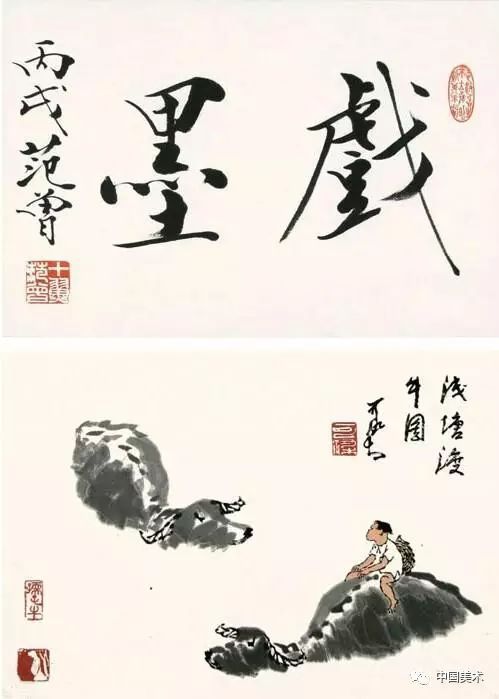 戲墨
丙戌范曾
十翼
范曾
浅塘渡
牛图
可染
可染
中国美术